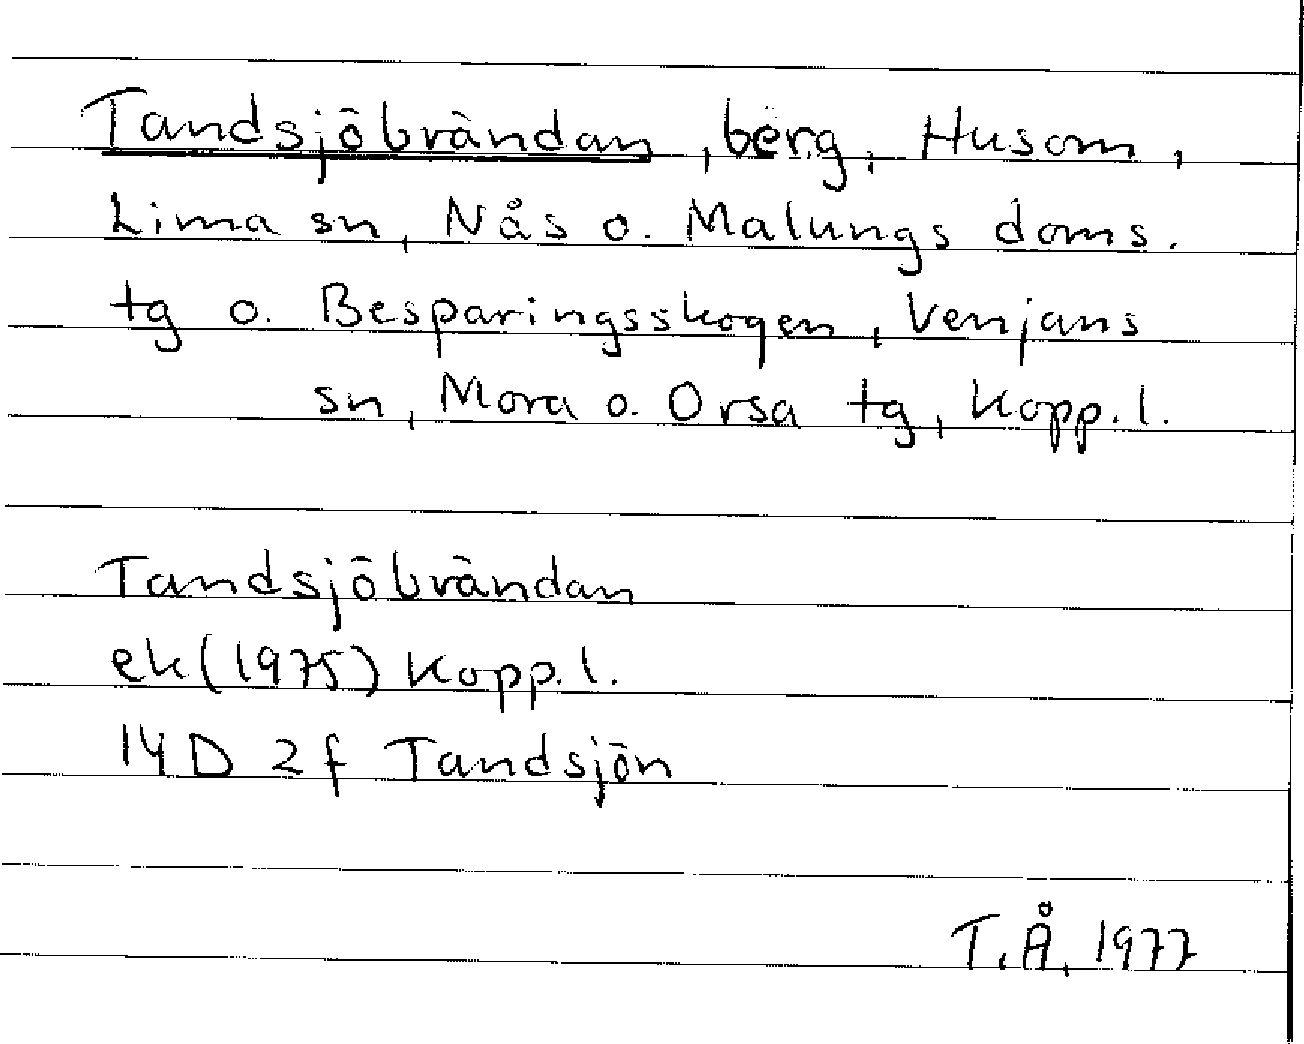 Tandsjöbrändan, berg, Husom,
Lima sn, Nås o. Malungs doms.
tg o. Besparingsskogen, Venjans
sn, Mora o. Orsa tg, Kopp. l.
Tandsjöbrändan
ek (1975) Kopp. l.
14D 2f Tandsjön
T. Å. 1977